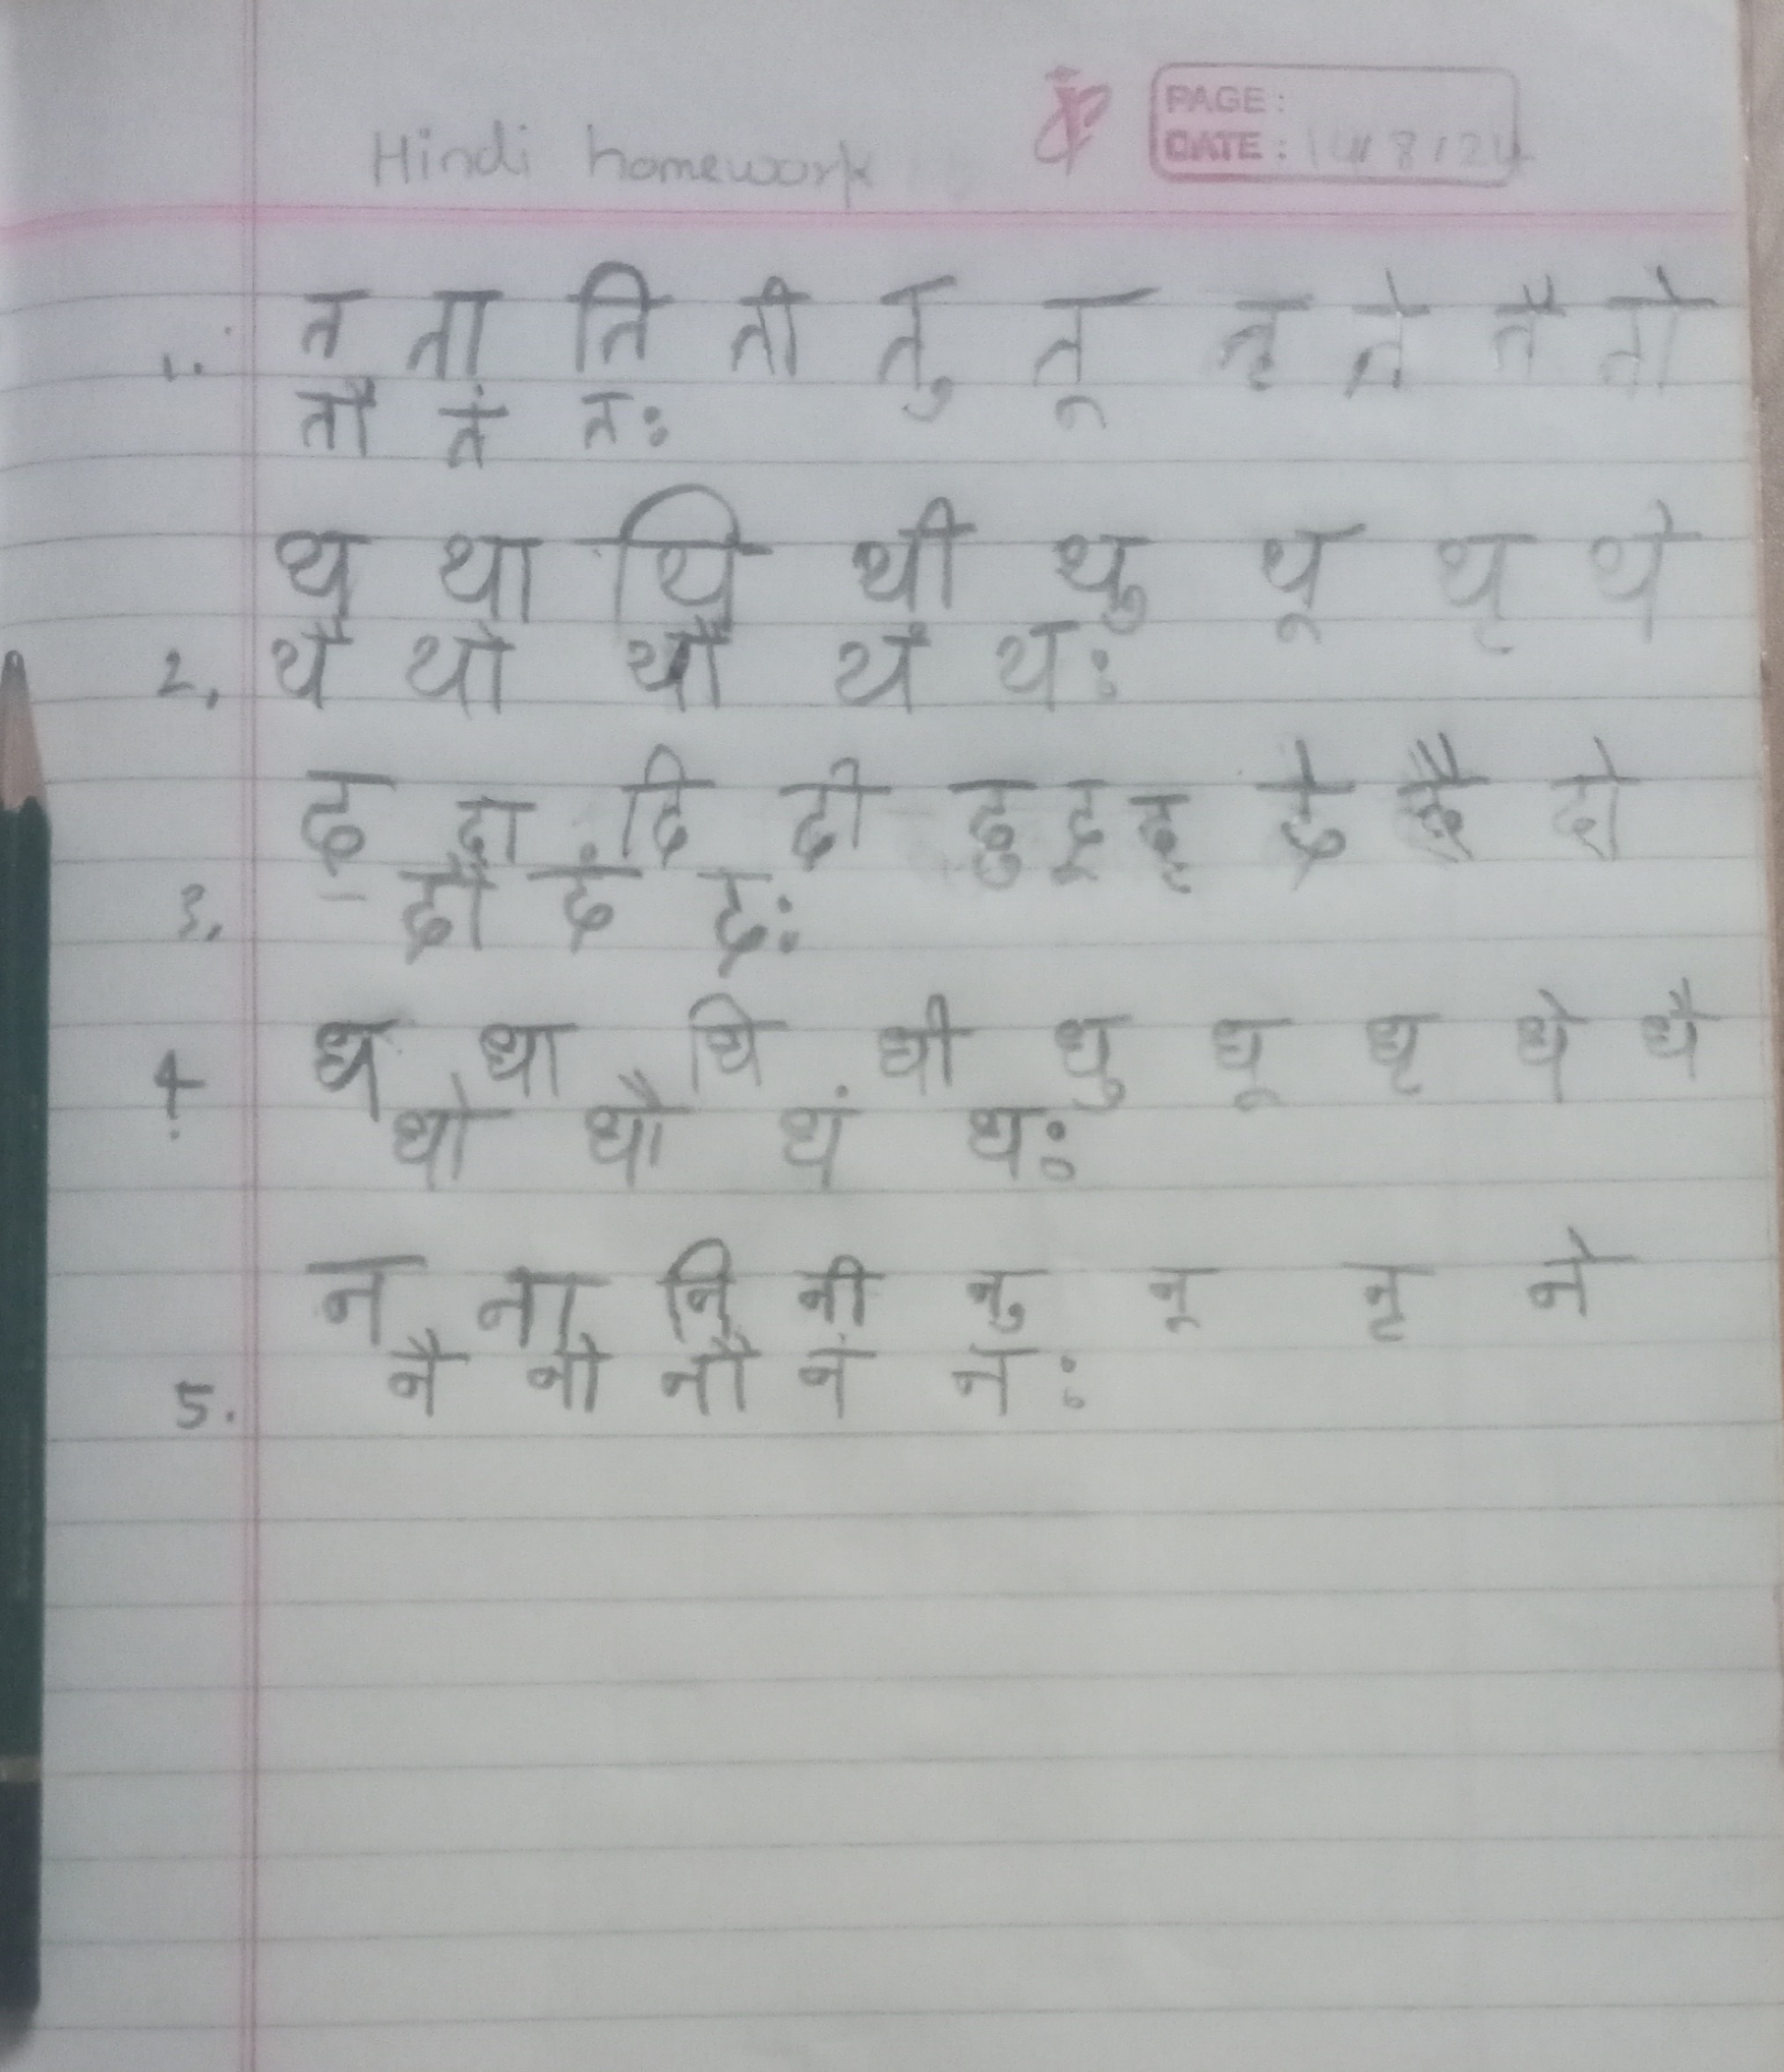 Hindi homework
PAGE :
DATE : 14/8/24
1. त ता ति ती तु तू तृ ते तै तो
तौ तं तः
थ था थि थी थु थू थृ थे
2. थै थो थौ थं थः
द दा दि दी दु दू दृ दे दै दो
3. दौ दं दः
4. ध धा धि धी धु धू धृ धे धै
धो धौ धं धः
न ना नि नी नु नू नृ ने
5. नै नो नौ नं नः